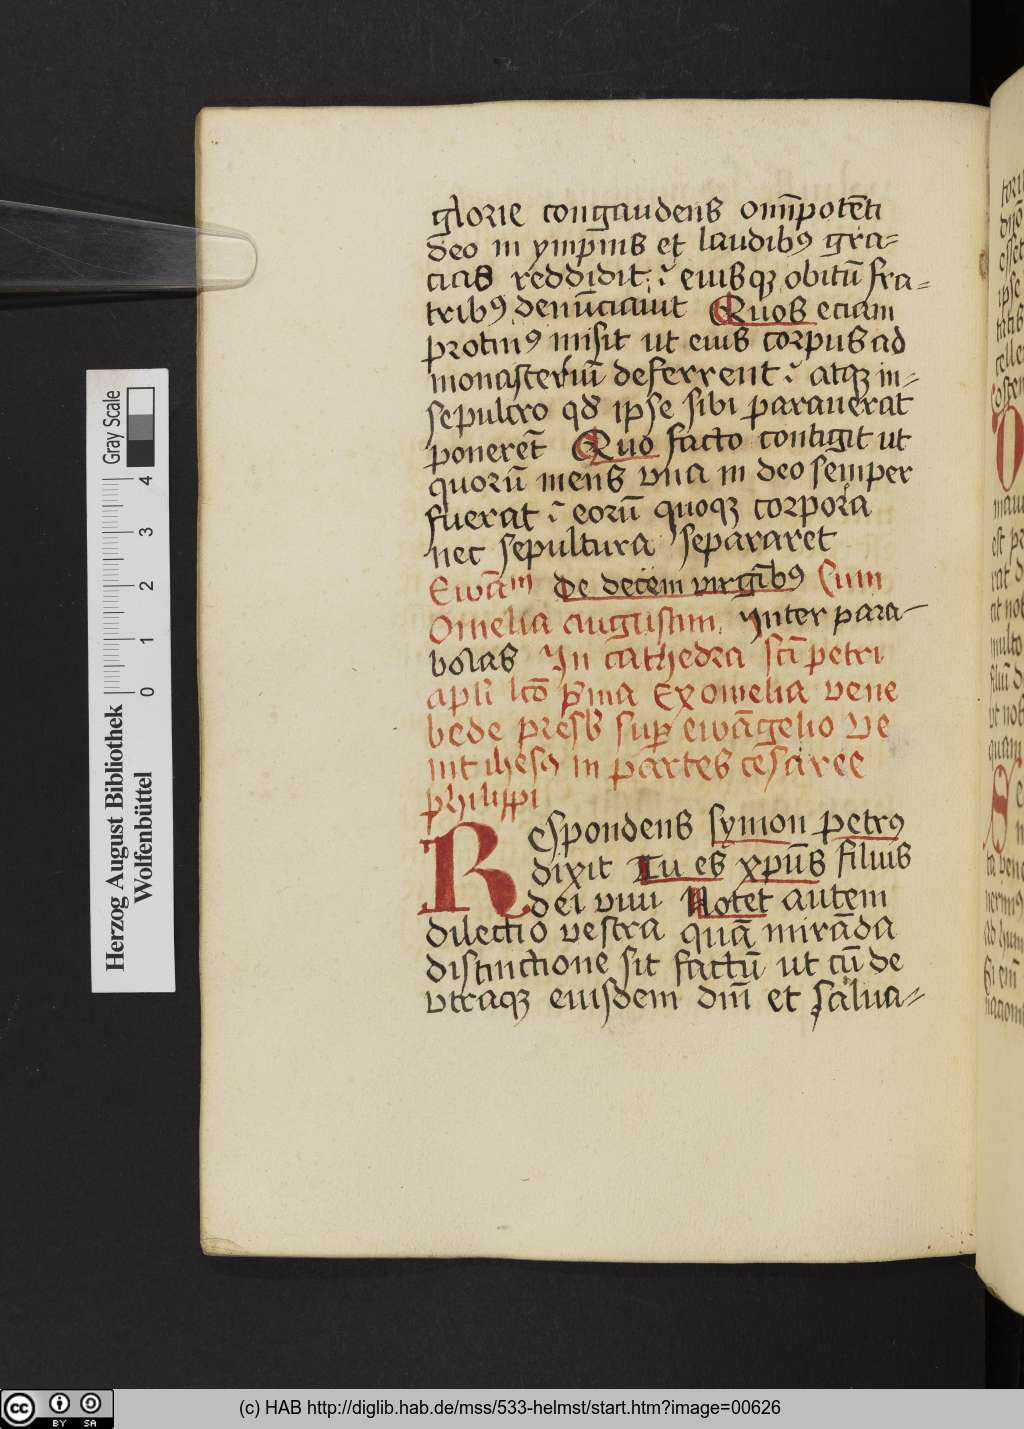 glorie congaudens om̄ipotēti
deo in ympnis et laudibꝫ gra=
cias reddidit ; eiusqꝫ obitū fra=
tribꝫ denūciauit Quos eciam
protinꝰ misit ut eius corpus ad
monasteriū deferrent : atqꝫ in=
sepulcro qd ipse sibi parauerat
poneret̄ Quo facto contigit ut
quorū mens vna in deo semper
fuerat : eorū quoqꝫ corpora
nec sepultura separaret
Ewāᵐ De decem virgībꝰ Cum
Omelia augustini. Inter para-
bolas In cathedra sci petri
apli lcō p̄ma Ex omelia vene
bede presb sup ewāgelio Ve
nit ihesꝰ in partes cesaree
philippi
Respondens symon petrꝰ
dixit Tu es xpūs filius
dei viui Notet autem
dilectio vestra quā mirāda
distinctione sit factū ut cū de
vtraqꝫ eiusdem dm̄i et salua=
Herzog August Bibliothek
Wolfenbüttel
0 1 2 3 4
Gray Scale
cc BY SA
(c) HAB http://diglib.hab.de/mss/533-helmst/start.htm?image=00626